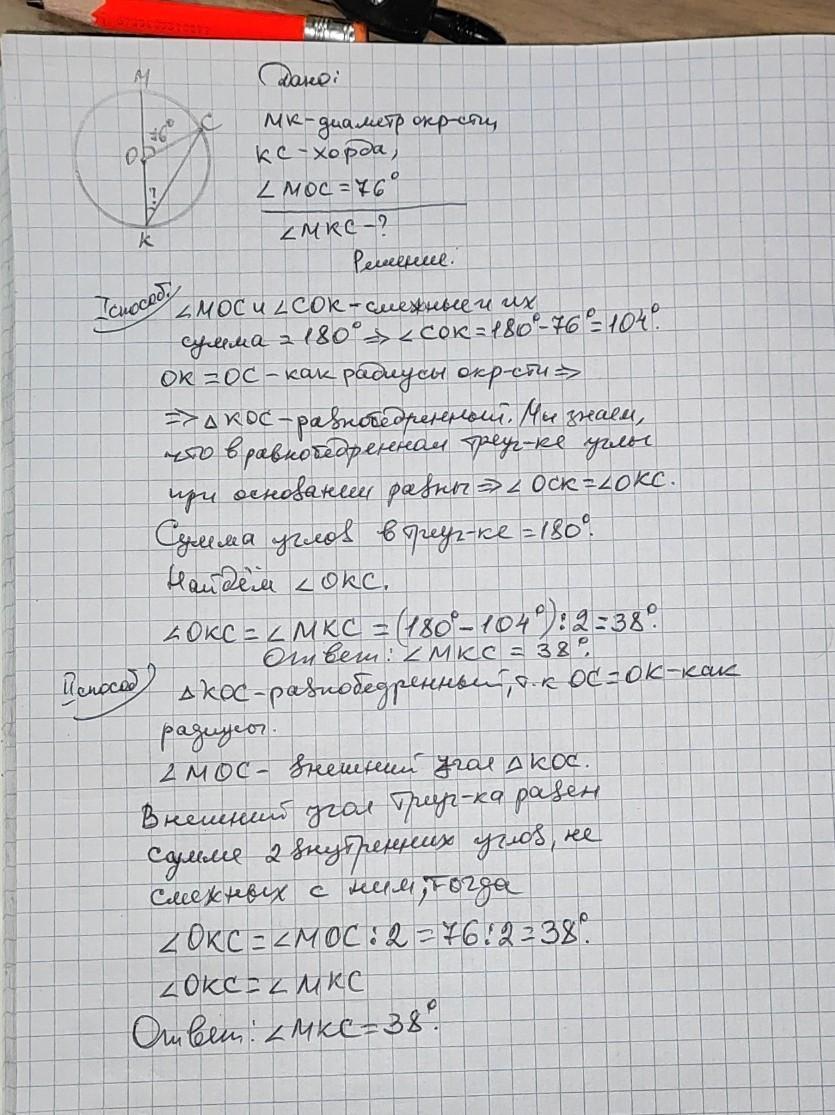 M
76°
C
O
?
K
Дано:
МК-диаметр окр-сти,
КС-хорда,
∠МОС=76°
∠МКС-?
Решение:
I способ.
∠МОС и ∠СОК-смежные и их
сумма = 180° ⇒ ∠СОК=180°-76°=104°.
ОК=ОС-как радиусы окр-сти ⇒
⇒ △КОС-равнобедренный. Мы знаем,
что в равнобедренном треуг-ке углы
при основании равны ⇒ ∠ОСК=∠ОКС.
Сумма углов в треуг-ке =180°.
Найдём ∠ОКС.
∠ОКС = ∠МКС = (180°-104°):2=38°.
Ответ: ∠МКС = 38°.
II способ
△КОС-равнобедренный, т.к ОС=ОК-как
радиусы.
∠МОС- внешний угол △КОС.
Внешний угол треуг-ка равен
сумме 2 внутренних углов, не
смежных с ним, тогда
∠ОКС=∠МОС:2=76:2=38°.
∠ОКС=∠МКС
Ответ: ∠МКС=38°.